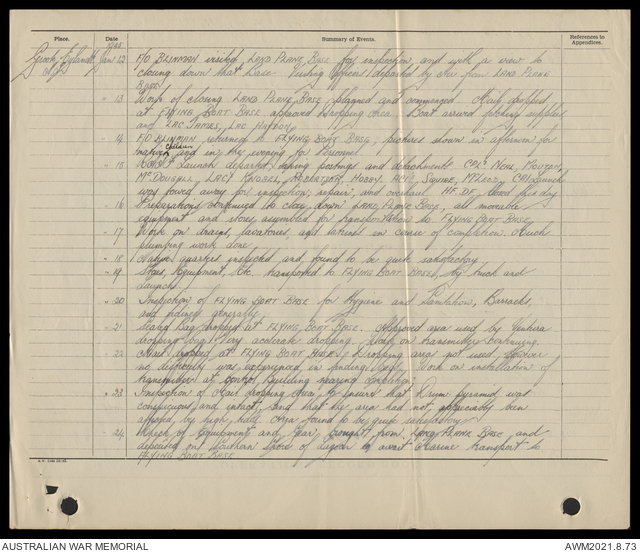 Place. Date Summary of Events. References to Appendices.
Groote Eylandt 1945 Jan 12 F/O BLINMAN visited LAND PLANE BASE for inspection, and with a view to
closing down that Base. Visiting officers departed by air from LAND PLANE
BASE.
" 13 Work of closing LAND PLANE BASE planned and commenced. Mail dropped
at FLYING BOAT BASE approved dropping area. Boat arrived
and LAC JAMES, LAC
" 14 F/O BLINMAN returned to FLYING BOAT BASE, pictures shown in afternoon for
native children and in the evening for Personnel.
" 15 Launch departed, postings and detachments CPL. NEAL,
McDOUGALL, LAC'S KNOBEL, HOBBY, SQUIRE,
was towed away for inspection, repair, and overhaul. HF.DF. this day
" 16 Preparations continued to close down LAND PLANE BASE, all moveable
equipment and stores assembled for transportation to FLYING BOAT BASE.
" 17 Work on drains, lavatories, and latrines in course of completion. Much
plumbing work done.
" 18 Native quarters inspected and found to be quite satisfactory.
" 19 Stores, Equipment, Etc. transported to FLYING BOAT BASE, by truck and
Launch.
" 20 Inspection of FLYING BOAT BASE for Hygiene and Sanitation, Barracks,
and generally.
" 21 Bag dropped at FLYING BOAT BASE. Approved area used by Ventura
dropping bag. Very accurate dropping. Work on transmitter continuing.
" 22 Mail dropped at FLYING BOAT BASE, dropping area not used, however
no difficulty was experienced in finding Work on installation of
transmitter at Control Building nearing completion.
" 23 Inspection of Mail dropping area to ensure that Drum pyramid was
conspicuous and intact, and that the area had not appreciably been
affected by high tide. Area found to be quite satisfactory.
" 24 of Equipment and Gear brought from LAND PLANE BASE and
deposited on Southern Shore of Lagoon to await Marine transport to
FLYING BOAT BASE
AUSTRALIAN WAR MEMORIAL AWM2021.8.73